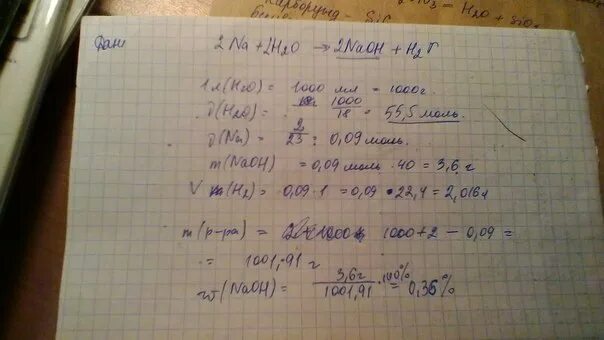 Карборунд - SiC
= H2O + SiO2
Дано
2Na + 2H2O → 2NaOH + H2↑
1л(H2O) = 1000 мл = 1000г.
υ(H2O) = 1000/18 = 55,5 моль.
υ(Na) = 2/23 = 0,09 моль.
m(NaOH) = 0,09 моль · 40 = 3,6 г
V (H2) = 0,09 · 1 = 0,09 · 22,4 = 2,016л
m(р-ра) = 1000 + 2 - 0,09 =
= 1001,91 г
w(NaOH) = 3,6г/1001,91 · 100% = 0,36%